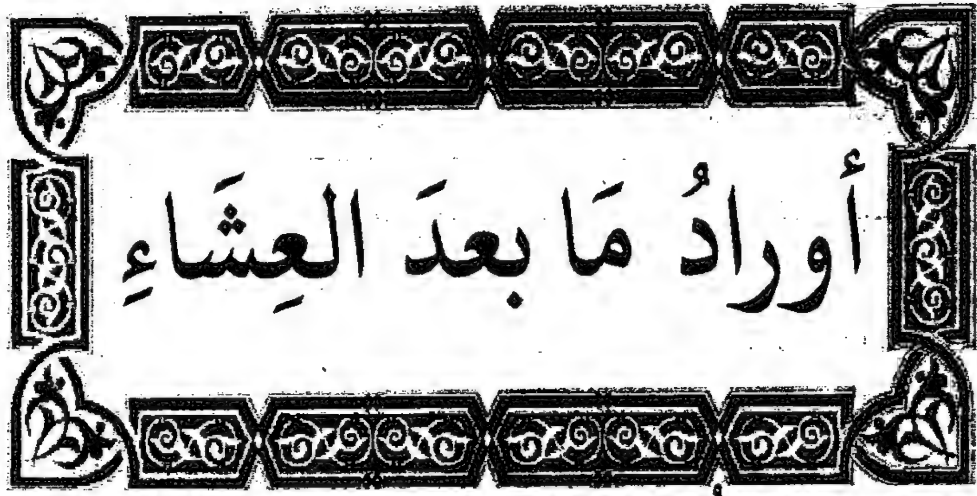 أورادُ مَا بعدَ العِشَاءِ